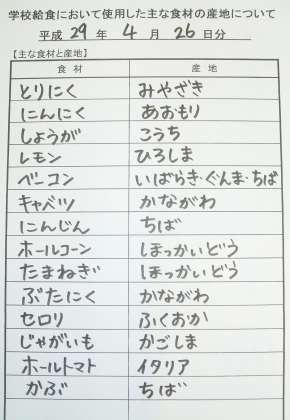 学校給食において使用した主な食材の産地について
平成 29 年 4 月 26 日分
【主な食材と産地】
食材 産地
とりにく みやざき
にんにく あおもり
しょうが こうち
レモン ひろしま
ベーコン いばらき・ぐんま・ちば
キャベツ かながわ
にんじん ちば
ホールコーン ほっかいどう
たまねぎ ほっかいどう
ぶたにく かながわ
セロリ ふくおか
じゃがいも かごしま
ホールトマト イタリア
かぶ ちば